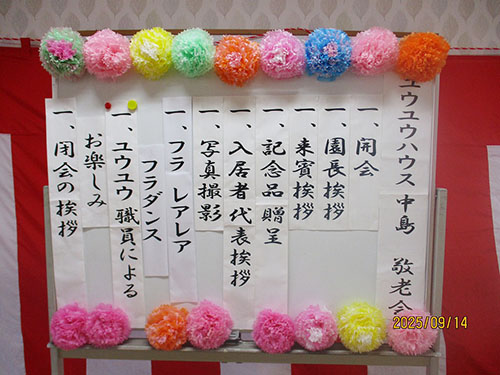 ユウユウハウス 中島 敬老会
一、開会
一、園長挨拶
一、来賓挨拶
一、記念品贈呈
一、入居者代表挨拶
一、写真撮影
一、フラ レアレア
フラダンス
一、ユウユウ 職員による
お楽しみ
一、閉会の挨拶
2025/09/14